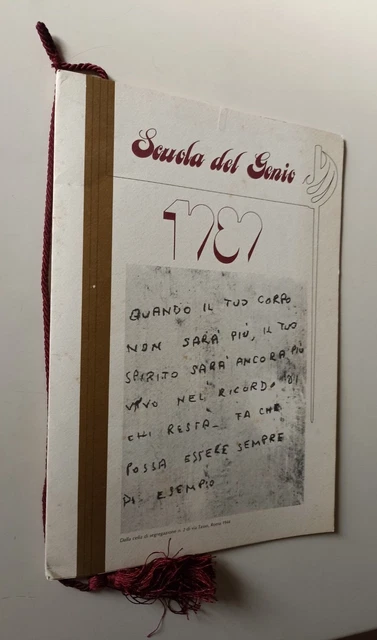 Scuola del Genio
1989
QUANDO IL TUO CORPO
NON SARA' PIÙ, IL TUO
SPIRITO SARA' ANCORA PIÙ
VIVO NEL RICORDO DI
CHI RESTA_ FA CHE
POSSA ESSERE SEMPRE
DI ESEMPIO
Dalla cella di segregazione n. 2 di via Tasso, Roma 1944